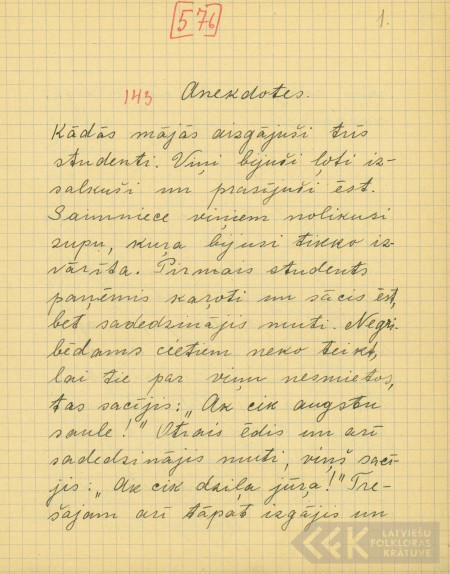 576
1.
143 Anekdotes.
Kādās mājās aizgājuši trīs
studenti. Viņi bijuši ļoti iz-
salkuši un prasījuši ēst.
Saimniece viņiem nolikusi
zupu, kuŗa bijusi tikko iz-
vārīta. Pirmais students
paņēmis kaŗoti un sācis ēst,
bet sadedzinājis muti. Negri-
bēdams citiem neko teikt,
lai tie par viņu nesmietos,
tas sacījis: „Ak cik augstu
saule!" Otrais ēdis un arī
sadedzinājis muti, viņš sacī-
jis: „Ak cik dziļa jūŗa!" Tre-
šajam arī tāpat izgājis un
LATVIEŠU
FOLKLORAS
KRĀTUVE